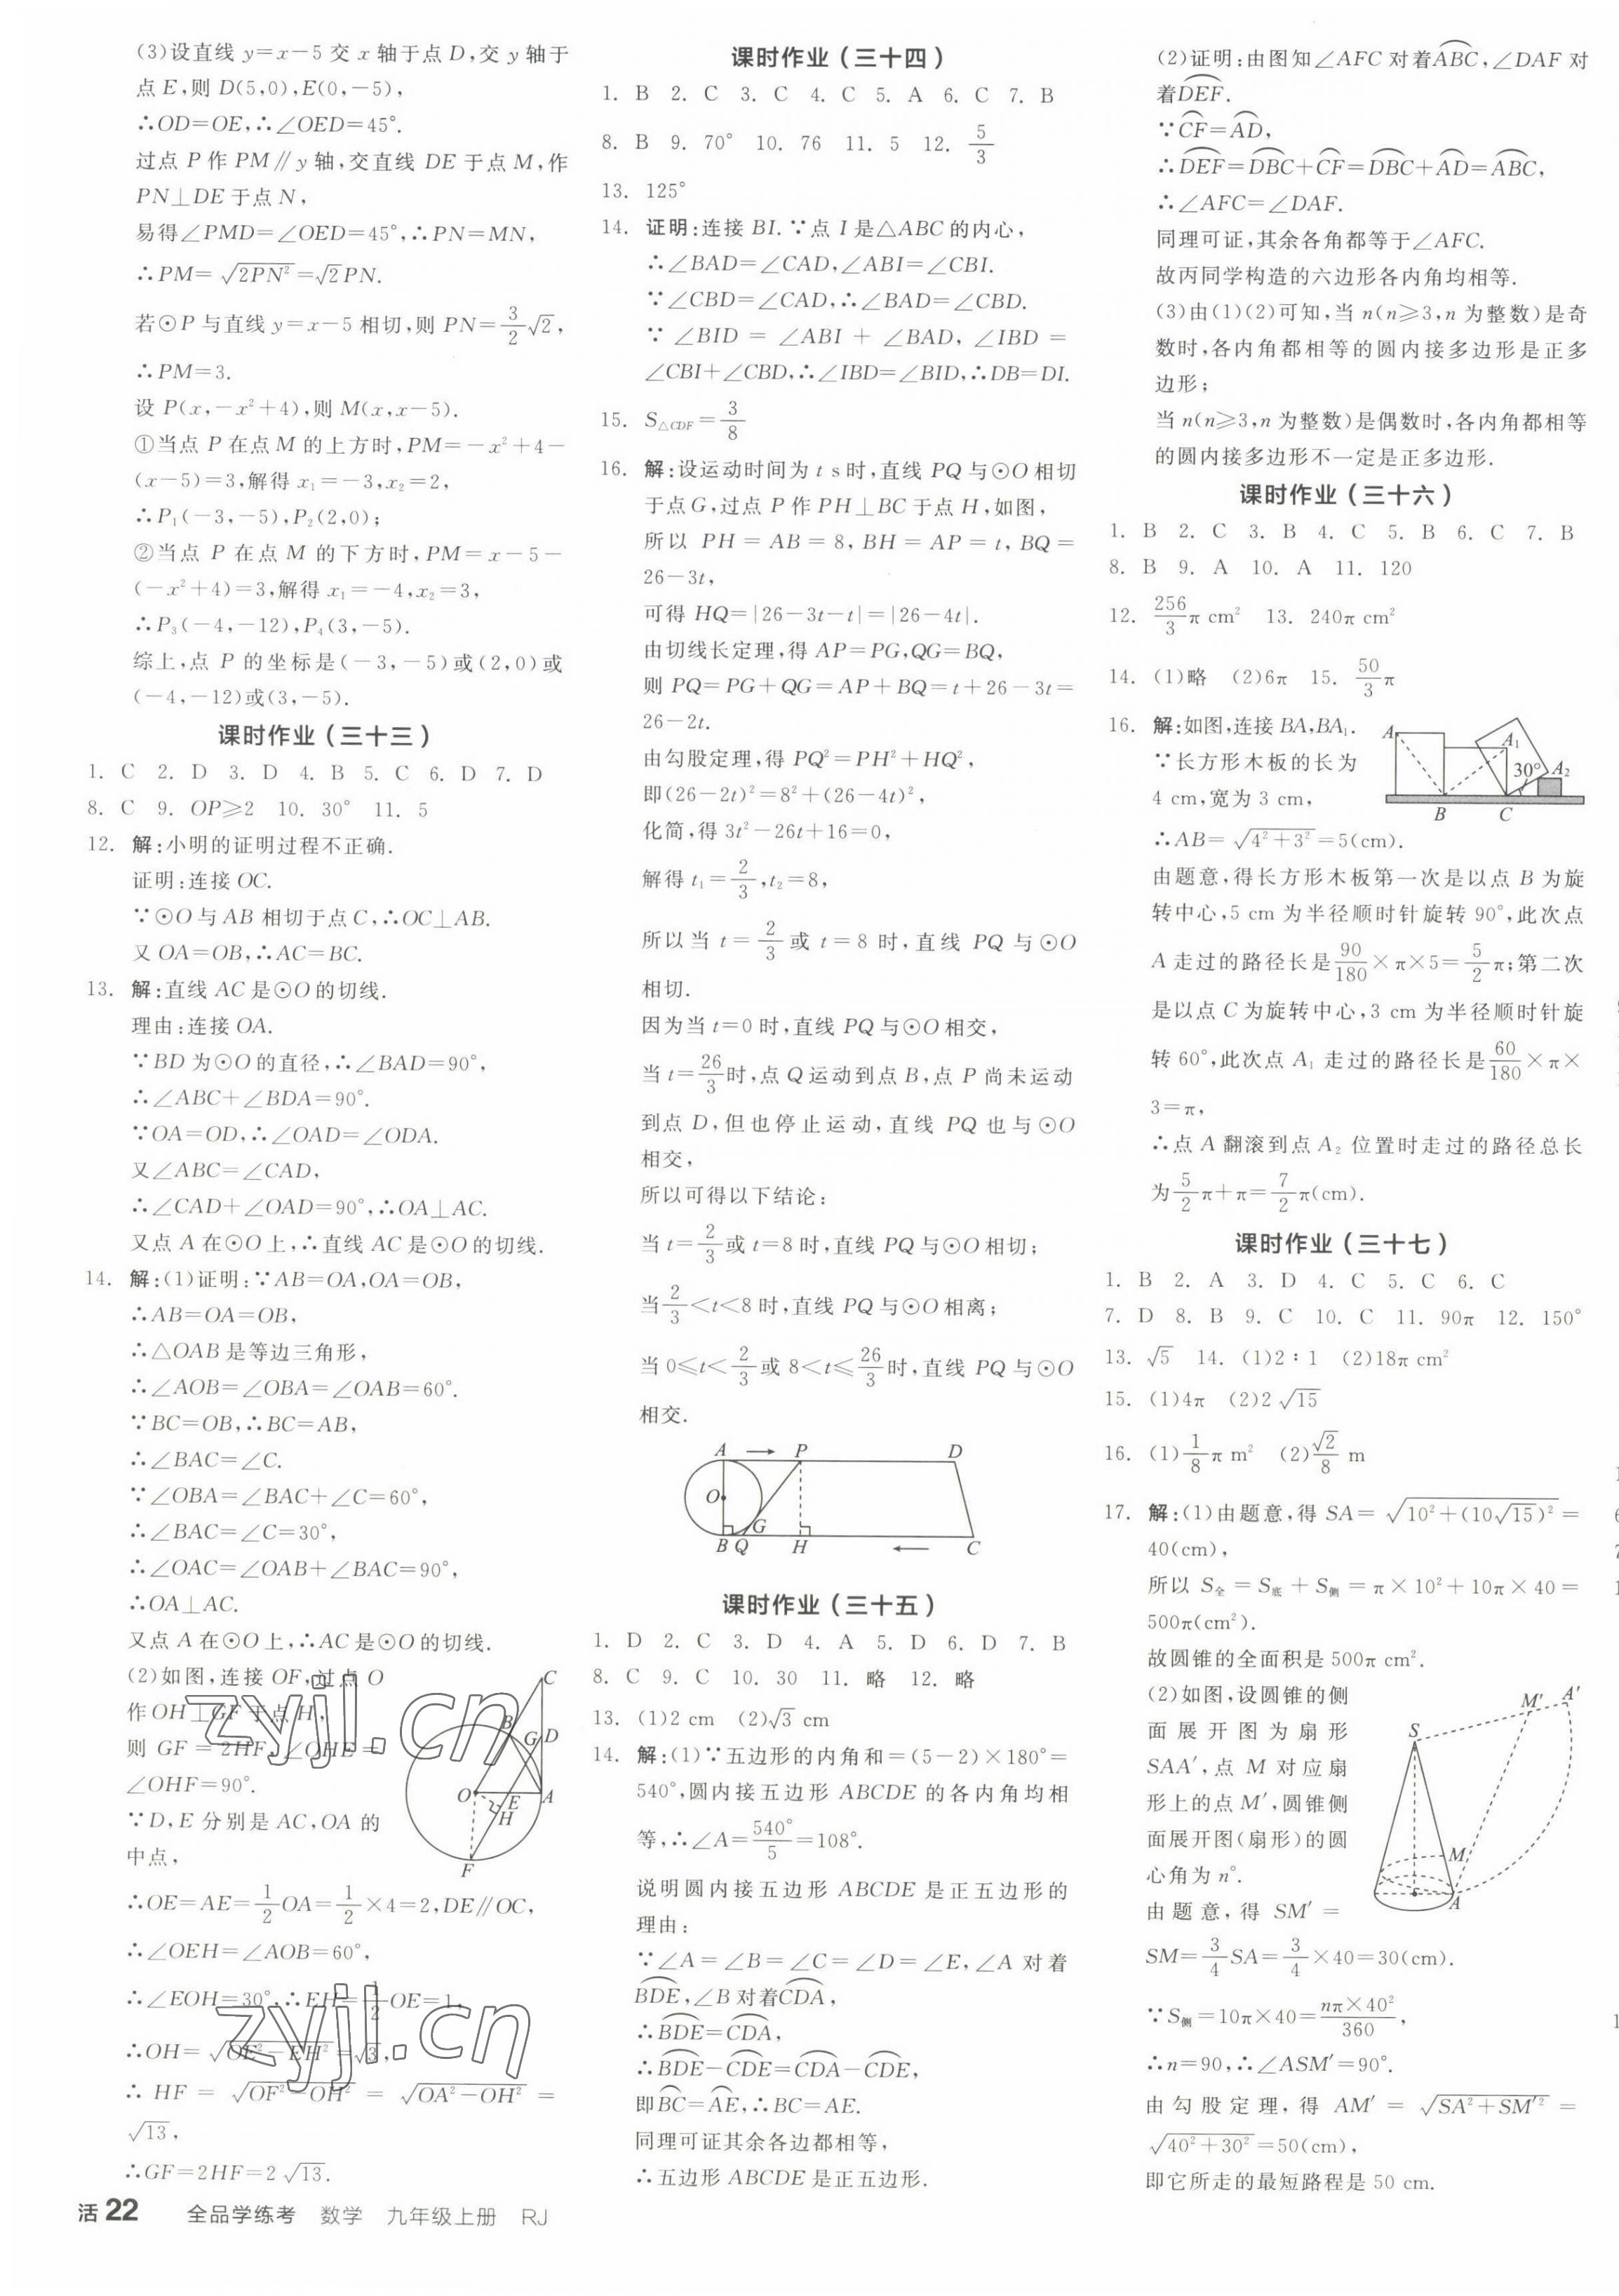 (3)设直线 y=x-5 交 x 轴于点 D,交 y 轴于
点 E,则 D(5,0),E(0,-5),
∴OD=OE,∴∠OED=45°.
过点 P 作 PM∥y 轴,交直线 DE 于点 M,作
PN⊥DE 于点 N,
易得∠PMD=∠OED=45°,∴PN=MN,
∴PM=√(2PN²)=√2PN.
若⊙P 与直线 y=x-5 相切,则 PN=3/2√2,
∴PM=3.
设 P(x,-x²+4),则 M(x,x-5).
①当点 P 在点 M 的上方时,PM=-x²+4-
(x-5)=3,解得 x₁=-3,x₂=2,
∴P₁(-3,-5),P₂(2,0);
②当点 P 在点 M 的下方时,PM=x-5-
(-x²+4)=3,解得 x₁=-4,x₂=3,
∴P₃(-4,-12),P₄(3,-5).
综上,点 P 的坐标是(-3,-5)或(2,0)或
(-4,-12)或(3,-5).
课时作业(三十三)
1. C 2. D 3. D 4. B 5. C 6. D 7. D
8. C 9. OP≥2 10. 30° 11. 5
12. 解:小明的证明过程不正确.
证明:连接 OC.
∵⊙O 与 AB 相切于点 C,∴OC⊥AB.
又 OA=OB,∴AC=BC.
13. 解:直线 AC 是⊙O 的切线.
理由:连接 OA.
∵BD 为⊙O 的直径,∴∠BAD=90°,
∴∠ABC+∠BDA=90°.
∵OA=OD,∴∠OAD=∠ODA.
又∠ABC=∠CAD,
∴∠CAD+∠OAD=90°,∴OA⊥AC.
又点 A 在⊙O 上,∴直线 AC 是⊙O 的切线.
14. 解:(1)证明:∵AB=OA,OA=OB,
∴AB=OA=OB,
∴△OAB 是等边三角形,
∴∠AOB=∠OBA=∠OAB=60°.
∵BC=OB,∴BC=AB,
∴∠BAC=∠C.
∵∠OBA=∠BAC+∠C=60°,
∴∠BAC=∠C=30°,
∴∠OAC=∠OAB+∠BAC=90°,
∴OA⊥AC.
又点 A 在⊙O 上,∴AC 是⊙O 的切线.
(2)如图,连接 OF,过点 O
作 OH⊥GF 于点 H,
则 GF=2HF,∠OHE=
∠OHF=90°.
∵D,E 分别是 AC,OA 的
中点,
C
B
G D
O
E A
H
F
∴OE=AE=1/2OA=1/2×4=2,DE∥OC,
∴∠OEH=∠AOB=60°,
∴∠EOH=30°,∴EH=1/2OE=1,
∴OH=√(OE²-EH²)=√3,
∴HF=√(OF²-OH²)=√(OA²-OH²)=
√13,
∴GF=2HF=2√13.
zyjl.cn
zyjl.cn
活22 全品学练考 数学 九年级上册 RJ
课时作业(三十四)
1. B 2. C 3. C 4. C 5. A 6. C 7. B
8. B 9. 70° 10. 76 11. 5 12. 5/3
13. 125°
14. 证明:连接 BI.∵点 I 是△ABC 的内心,
∴∠BAD=∠CAD,∠ABI=∠CBI.
∵∠CBD=∠CAD,∴∠BAD=∠CBD.
∵∠BID=∠ABI+∠BAD,∠IBD=
∠CBI+∠CBD,∴∠IBD=∠BID,∴DB=DI.
15. S△CDF=3/8
16. 解:设运动时间为 t s 时,直线 PQ 与⊙O 相切
于点 G,过点 P 作 PH⊥BC 于点 H,如图,
所以 PH=AB=8,BH=AP=t,BQ=
26-3t,
可得 HQ=|26-3t-t|=|26-4t|.
由切线长定理,得 AP=PG,QG=BQ,
则 PQ=PG+QG=AP+BQ=t+26-3t=
26-2t.
由勾股定理,得 PQ²=PH²+HQ²,
即(26-2t)²=8²+(26-4t)²,
化简,得 3t²-26t+16=0,
解得 t₁=2/3,t₂=8,
所以当 t=2/3 或 t=8 时,直线 PQ 与⊙O
相切.
因为当 t=0 时,直线 PQ 与⊙O 相交,
当 t=26/3时,点 Q 运动到点 B,点 P 尚未运动
到点 D,但也停止运动,直线 PQ 也与⊙O
相交,
所以可得以下结论:
当 t=2/3或 t=8 时,直线 PQ 与⊙O 相切;
当2/3<t<8 时,直线 PQ 与⊙O 相离;
当 0≤t<2/3 或 8<t≤26/3时,直线 PQ 与⊙O
相交.
A P D
O
G
B Q H C
课时作业(三十五)
1. D 2. C 3. D 4. A 5. D 6. D 7. B
8. C 9. C 10. 30 11. 略 12. 略
13. (1)2 cm (2)√3 cm
14. 解:(1)∵五边形的内角和=(5-2)×180°=
540°,圆内接五边形 ABCDE 的各内角均相
等,∴∠A=540°/5=108°.
说明圆内接五边形 ABCDE 是正五边形的
理由:
∵∠A=∠B=∠C=∠D=∠E,∠A 对着
⌒BDE,∠B 对着⌒CDA,
∴⌒BDE=⌒CDA,
∴⌒BDE-⌒CDE=⌒CDA-⌒CDE,
即⌒BC=⌒AE,∴BC=AE.
同理可证其余各边都相等,
∴五边形 ABCDE 是正五边形.
(2)证明:由图知∠AFC 对着⌒ABC,∠DAF 对
着⌒DEF.
∵⌒CF=⌒AD,
∴⌒DEF=⌒DBC+⌒CF=⌒DBC+⌒AD=⌒ABC,
∴∠AFC=∠DAF.
同理可证,其余各角都等于∠AFC.
故丙同学构造的六边形各内角均相等.
(3)由(1)(2)可知,当 n(n≥3,n 为整数)是奇
数时,各内角都相等的圆内接多边形是正多
边形;
当 n(n≥3,n 为整数)是偶数时,各内角都相等
的圆内接多边形不一定是正多边形.
课时作业(三十六)
1. B 2. C 3. B 4. C 5. B 6. C 7. B
8. B 9. A 10. A 11. 120
12. 256/3π cm² 13. 240π cm²
14. (1)略 (2)6π 15. 50/3π
16. 解:如图,连接 BA,BA₁.
∵长方形木板的长为
4 cm,宽为 3 cm,
∴AB=√(4²+3²)=5(cm).
A A₁ 30° A₂
B C
由题意,得长方形木板第一次是以点 B 为旋
转中心,5 cm 为半径顺时针旋转 90°,此次点
A 走过的路径长是90/180×π×5=5/2π;第二次
是以点 C 为旋转中心,3 cm 为半径顺时针旋
转 60°,此次点 A₁ 走过的路径长是60/180×π×
3=π,
∴点 A 翻滚到点 A₂ 位置时走过的路径总长
为5/2π+π=7/2π(cm).
课时作业(三十七)
1. B 2. A 3. D 4. C 5. C 6. C
7. D 8. B 9. C 10. C 11. 90π 12. 150°
13. √5 14. (1)2∶1 (2)18π cm²
15. (1)4π (2)2√15
16. (1)1/8π m² (2)√2/8 m
17. 解:(1)由题意,得 SA=√(10²+(10√15)²)=
40(cm),
所以 S全=S底+S侧=π×10²+10π×40=
500π(cm²).
故圆锥的全面积是 500π cm².
(2)如图,设圆锥的侧
面展开图为扇形
SAA′,点 M 对应扇
形上的点 M′,圆锥侧
面展开图(扇形)的圆
心角为 n°.
由题意,得 SM′=
S M′ A′
M
A
SM=3/4SA=3/4×40=30(cm).
∵S侧=10π×40=nπ×40²/360,
∴n=90,∴∠ASM′=90°.
由勾股定理,得 AM′=√(SA²+SM′²)=
√(40²+30²)=50(cm),
即它所走的最短路程是 50 cm.